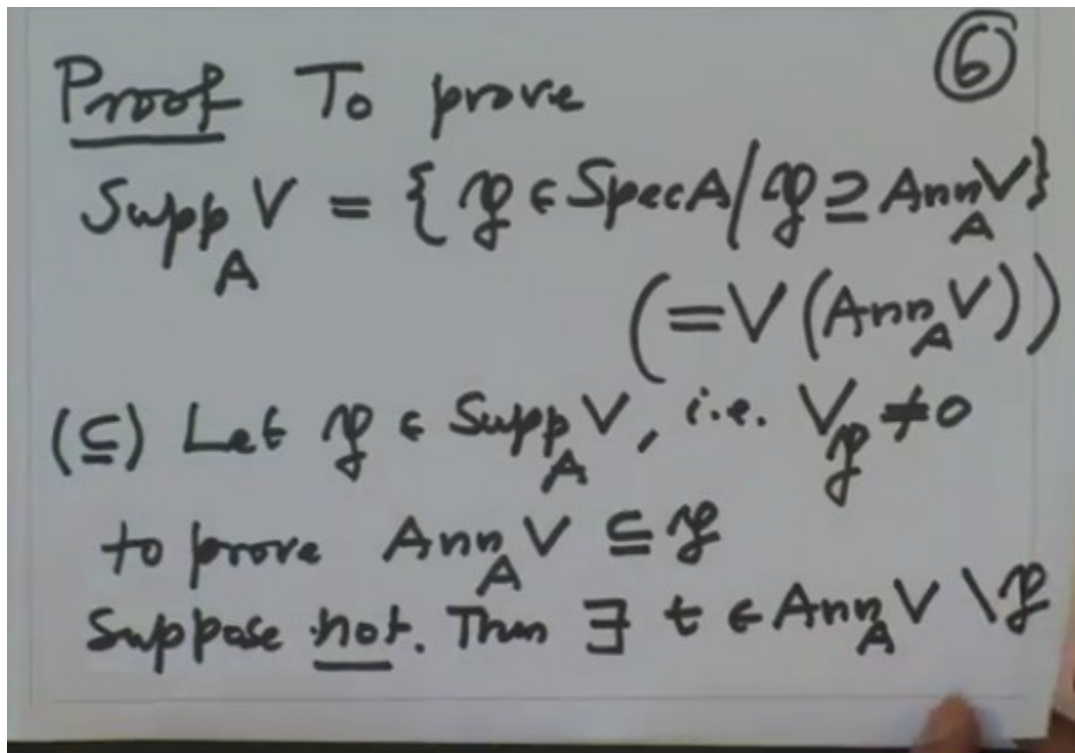 ⑥
Proof To prove
Supp_A V = { 𝔭 ∈ Spec A / 𝔭 ⊇ Ann_A V }
(= V (Ann_A V))
(⊆) Let 𝔭 ∈ Supp_A V, i.e. V_𝔭 ≠ 0
to prove Ann_A V ⊆ 𝔭
Suppose not. Then ∃ t ∈ Ann_A V \ 𝔭